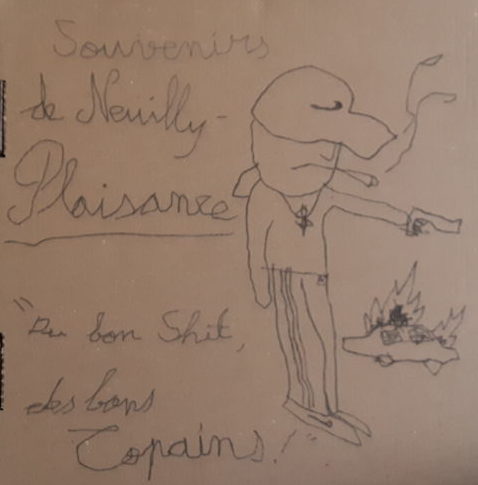 Souvenirs
de Neuilly-
Plaisance
"Du bon Shit,
des bons
Copains!"